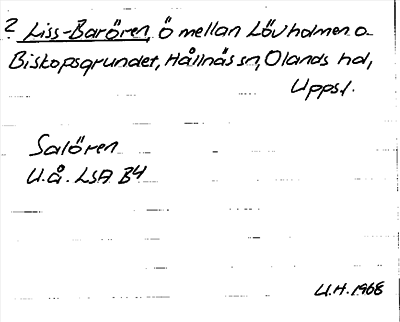 ? Liss-Barören, ö mellan Lövholmen o.
Biskopsgrundet, Hållnäs sn, Olands hd,
Uppsl.
Salören
U.å. LSA B4
U.H. 1968